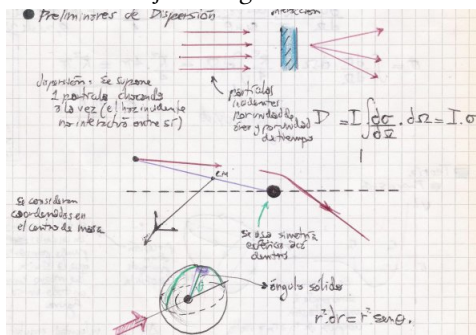 Preliminares de Dispersión
dispersión: se supone
1 partícula chocando
a la vez (el haz incidente
no interactúa entre sí)
partículas
incidentes
por unidad de
área y por unidad
de tiempo
D = I ∫ dσ/dΩ . dΩ = I . σ
CM
se consideran
coordenadas en
el centro de masa
se usa simetría
esférica acá
dentro
θ
ángulo sólido
r² dr = r² sen θ.